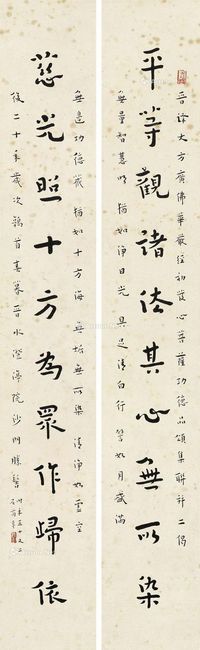 晉譯大方廣佛華嚴經初發心菩薩功德品頌集聯并二偈
平等觀諸法其心無所染
無量智慧明 猶如淨日光 具足清白行 譬如月盛滿
無邊功德藏 猶如十方海 無垢無所染 清淨如虛空
慈光照十方為眾作歸依
後二十年歲次鶉首 晉水 院沙門勝髻 時年五十又二